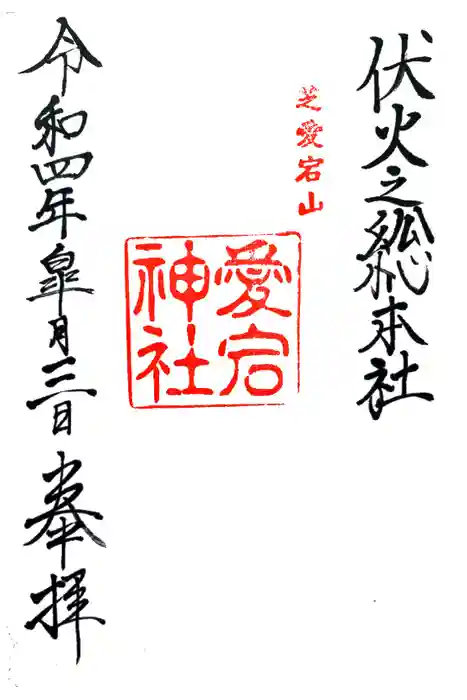 伏火之総本社
芝愛宕山
愛宕
神社
令和四年皐月三日
奉拝